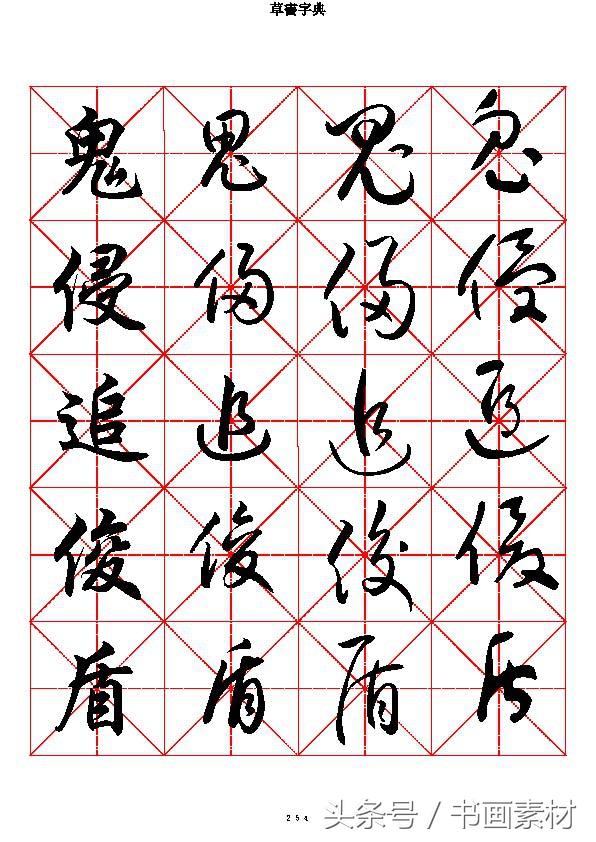 草書字典
鬼 鬼 鬼 鬼
侵 侵 侵 侵
追 追 追 追
俊 俊 俊 俊
盾 盾 盾 盾
254
头条号 / 书画素材